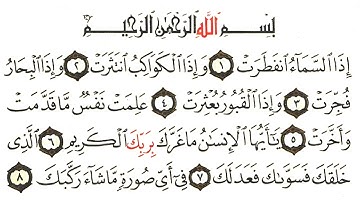 بِسْمِ اللَّهِ الرَّحْمَٰنِ الرَّحِيمِ
إِذَا السَّمَاءُ انفَطَرَتْ ١ وَإِذَا الْكَوَاكِبُ انتَثَرَتْ ٢ وَإِذَا الْبِحَارُ
فُجِّرَتْ ٣ وَإِذَا الْقُبُورُ بُعْثِرَتْ ٤ عَلِمَتْ نَفْسٌ مَّا قَدَّمَتْ
وَأَخَّرَتْ ٥ يَٰأَيُّهَا الْإِنسَٰنُ مَا غَرَّكَ بِرَبِّكَ الْكَرِيمِ ٦ الَّذِي
خَلَقَكَ فَسَوَّىٰكَ فَعَدَلَكَ ٧ فِي أَيِّ صُورَةٍ مَّا شَاءَ رَكَّبَكَ ٨